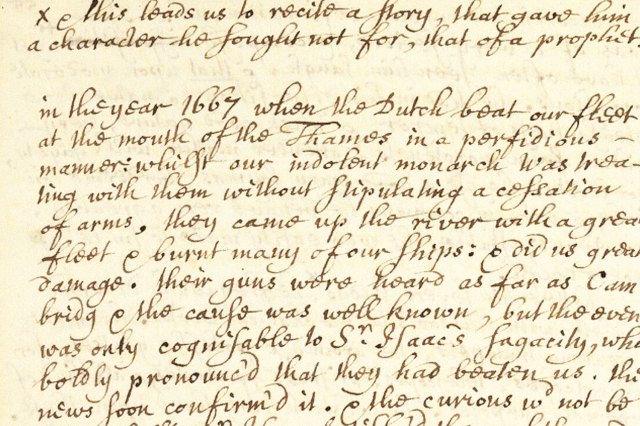 x & this leads us to recite a story, that gave him
a character he sought not for, that of a prophet.
in the year 1667 when the Dutch beat our fleet
at the mouth of the Thames in a perfidious
manner: whilst our indolent monarch was trea-
ting with them without stipulating a cessation
of arms. they came up the river with a grea
fleet & burnt many of our ships: & did us grea
damage. their guns were heard as far as Cam
bridg & the cause was well known, but the even
was only cognisable to Sr. Isaac's sagacity, who
boldly pronounc'd that they had beaten us. the
news soon confirm'd it. & the curious wd not be